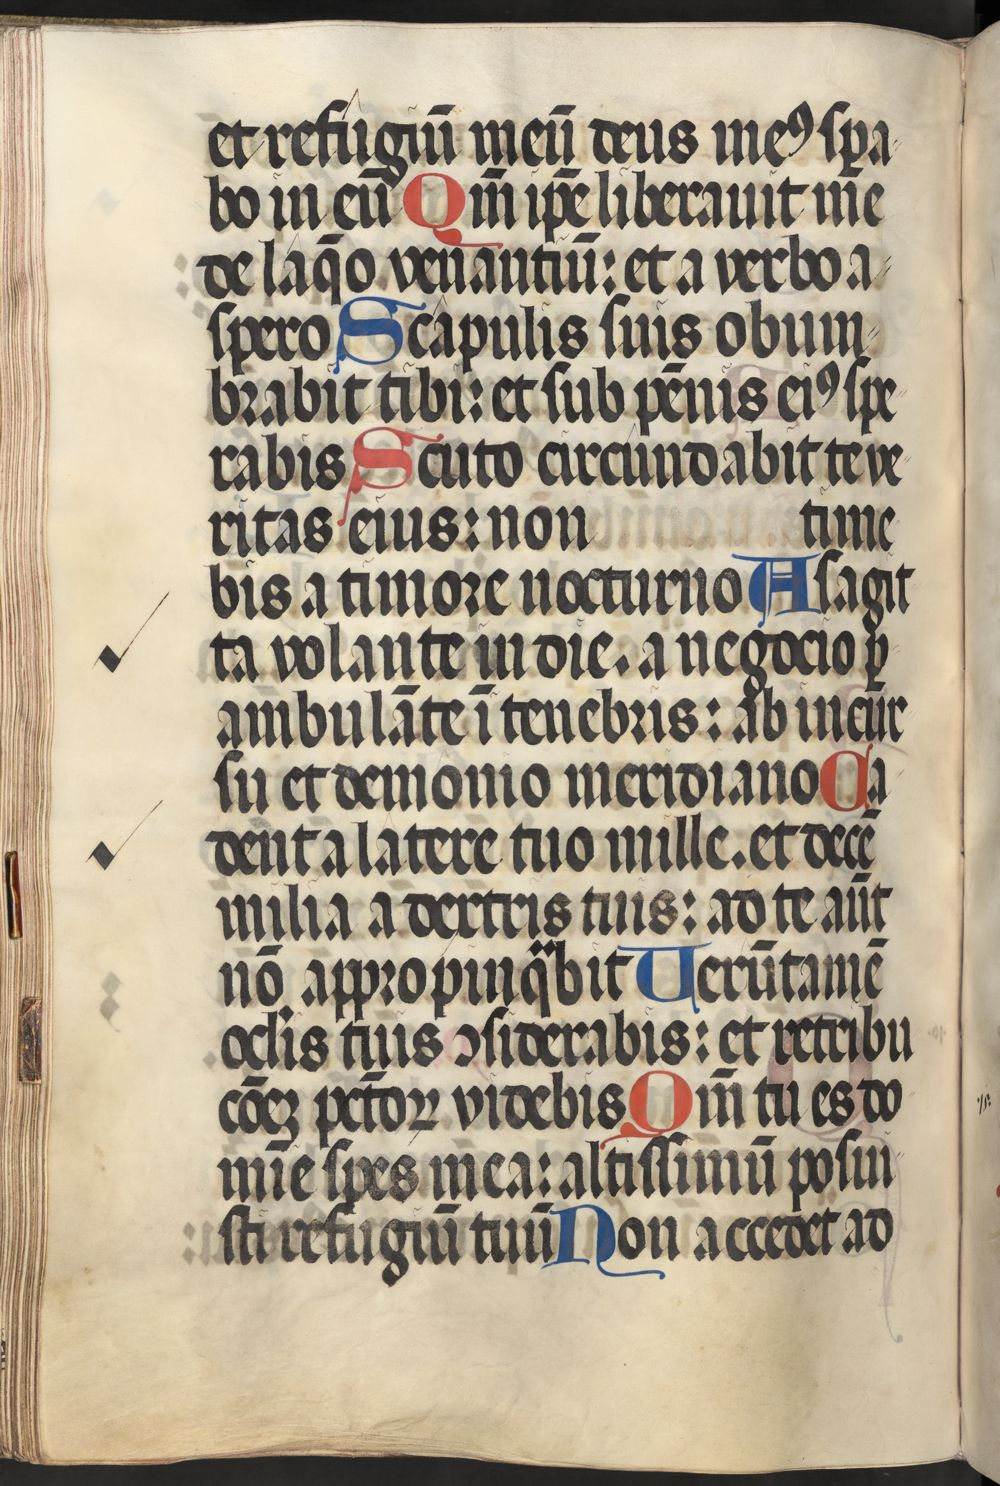 et refugiū meū deus meꝰ spa
bo in eū Qm̄ ip̄e liberauit me
de laq̄o venantiū: et a verbo a
spero Scapulis suis obum
brabit tibi: et sub pēnis eiꝰ spe
rabis Scuto circundabit te ve
ritas eius: non time
bis a timore nocturno A sagit
ta volante in die. a negocio ꝑ
ambulāte ī tenebris: ab incur
su et demonio meridiano Ca
dent a latere tuo mille. et decē
milia a dextris tuis: ad te aūt
nō appropinqͣbit Uerūtamē
oclis tuis ↄsiderabis: et retribu
cōeꝫ pctōꝝ videbis Qm̄ tu es do
mīe spes mea: altissimū posui
sti refugiū tuū Non accedet ad